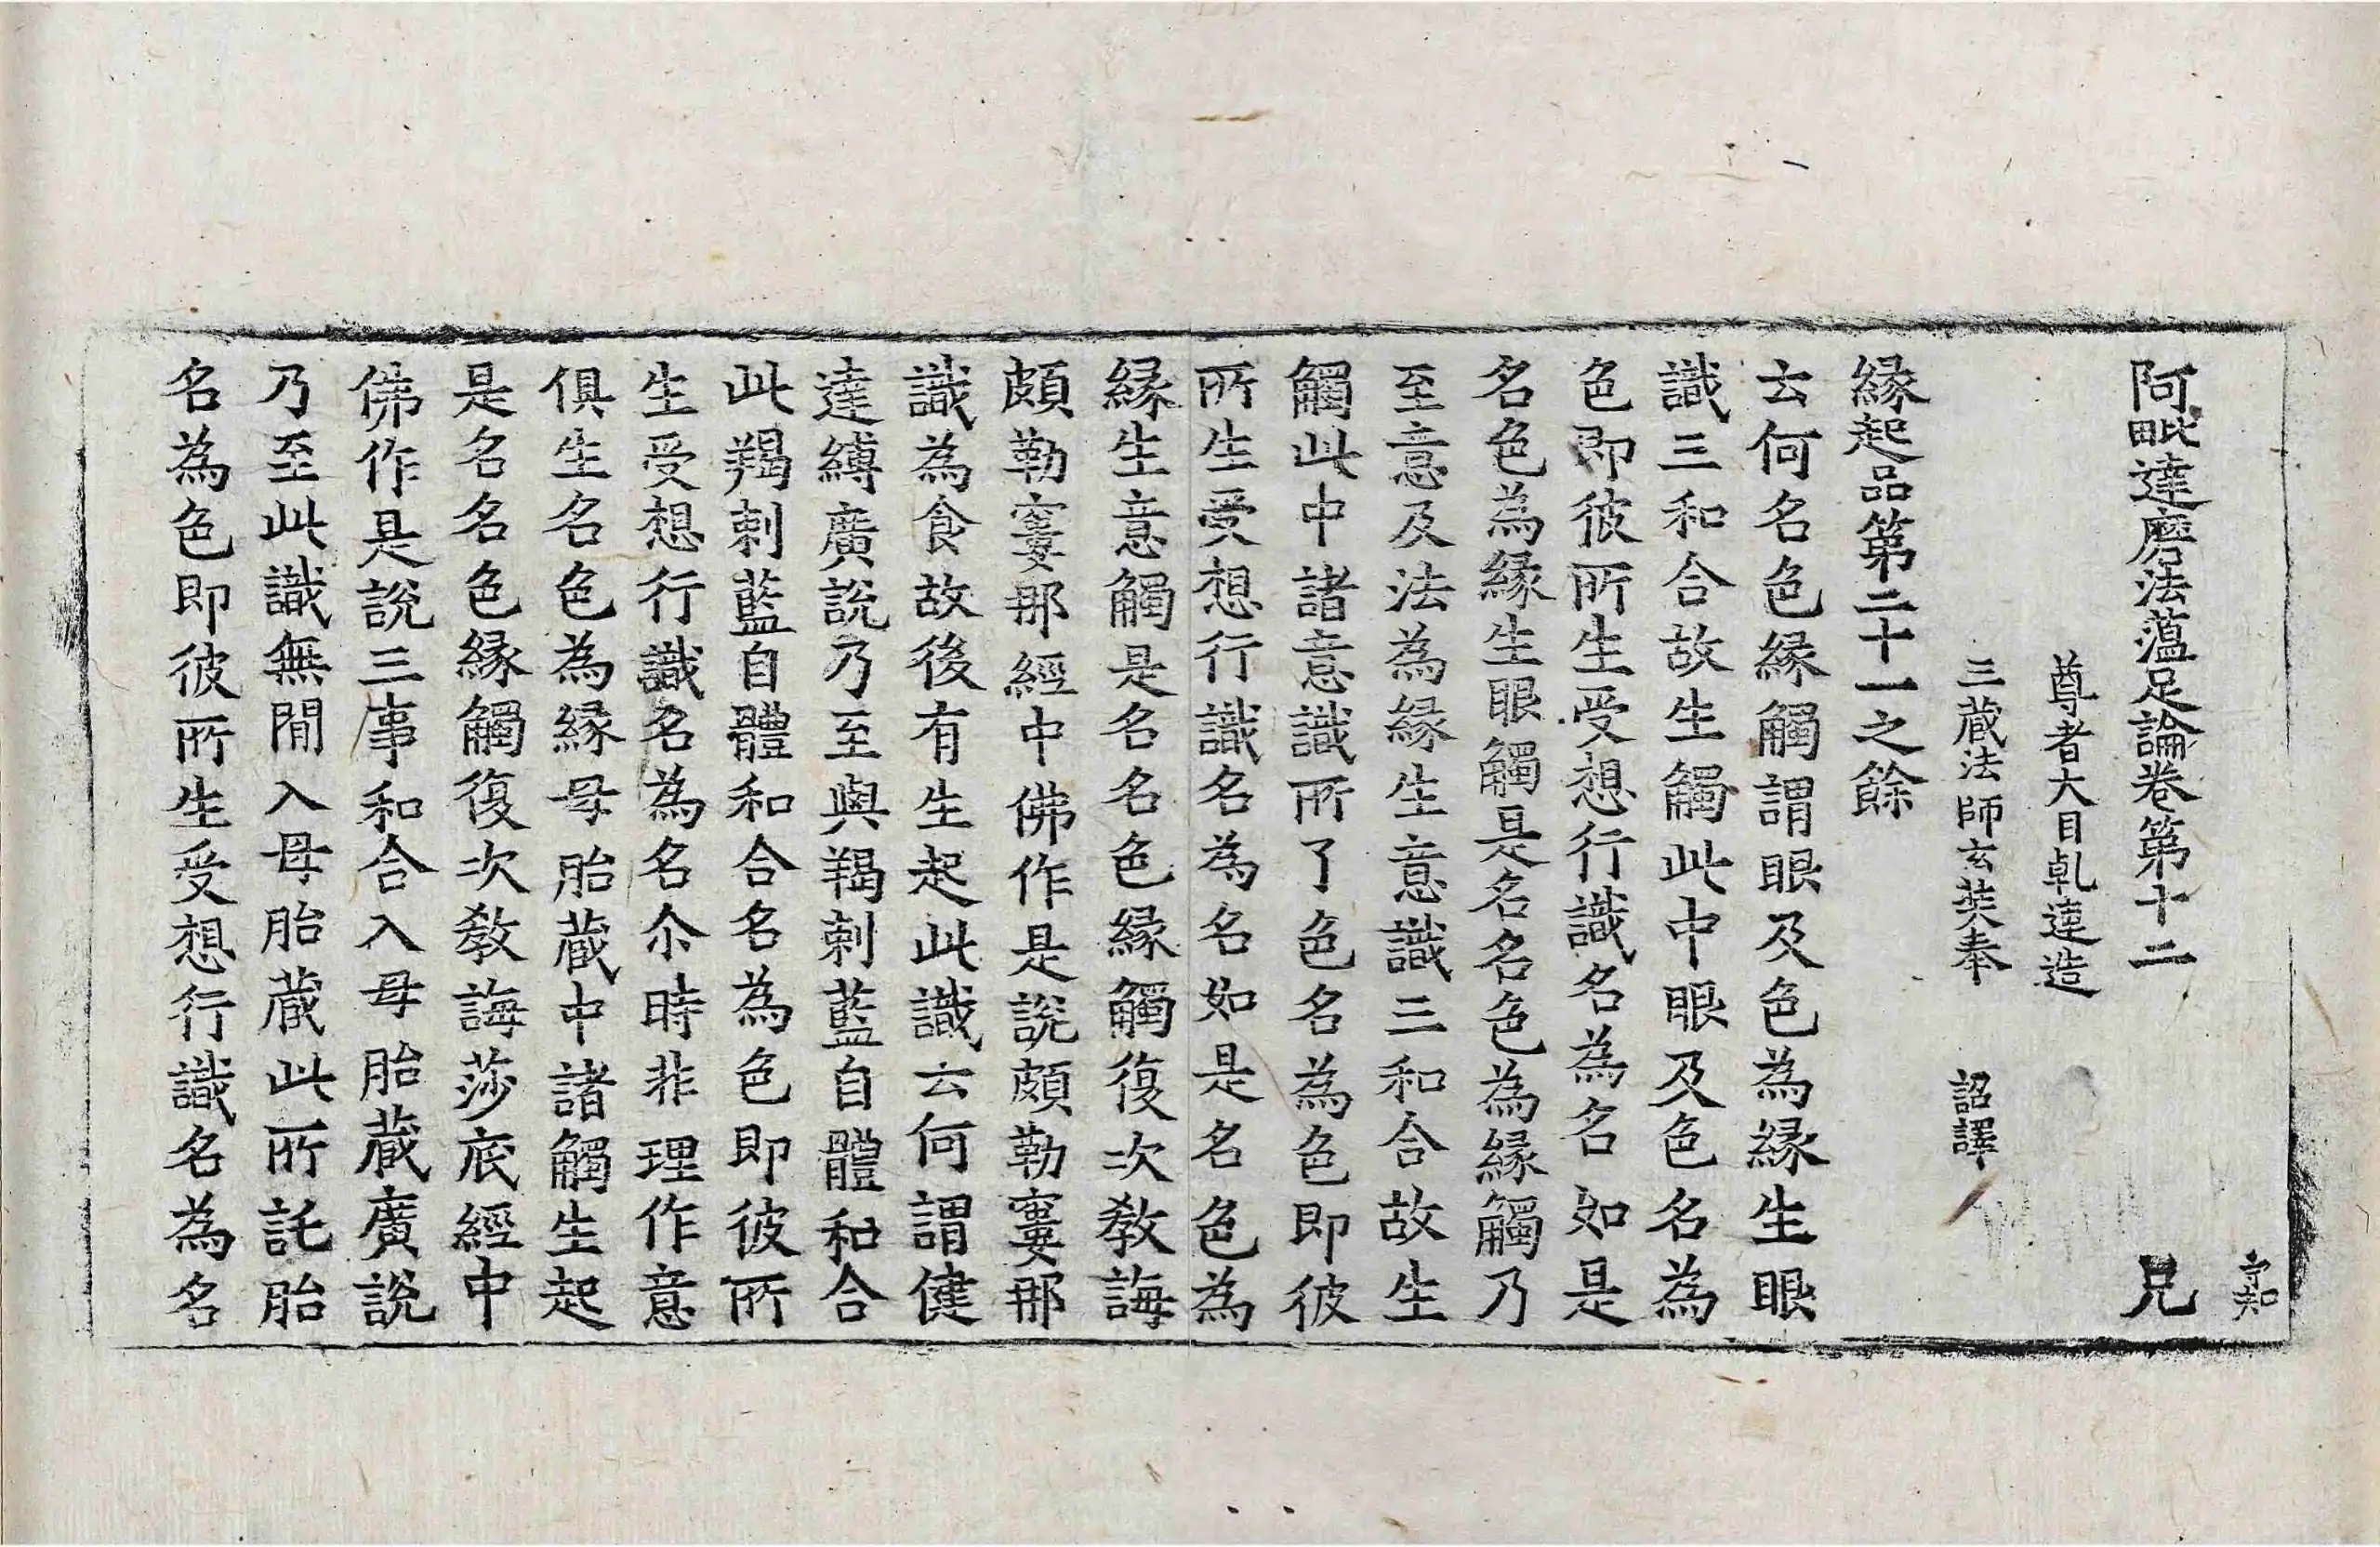 守知
阿毗達磨法蘊足論卷第十二 兄
尊者大目乹連造
三藏法師玄奘奉 詔譯
緣起品第二十一之餘
云何名色緣觸謂眼及色為緣生眼
識三和合故生觸此中眼及色名為
色即彼所生受想行識名為名如是
名色為緣生眼觸是名名色為緣觸乃
至意及法為緣生意識三和合故生
觸此中諸意識所了色名為色即彼
所生受想行識名為名如是名色為
緣生意觸是名名色緣觸復次教誨
頗勒窶那經中佛作是說頗勒窶那
識為食故後有生起此識云何謂健
達縛廣說乃至與羯剌藍自體和合
此羯剌藍自體和合名為色即彼所
生受想行識名為名尒時非理作意
俱生名色為緣母胎藏中諸觸生起
是名名色緣觸復次教誨莎底經中
佛作是說三事和合入母胎藏廣說
乃至此識無閒入母胎藏此所託胎
名為色即彼所生受想行識名為名